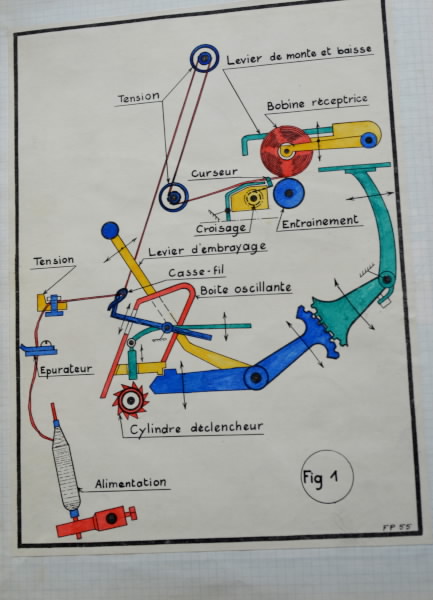 Levier de monte et baisse
Tension
Bobine réceptrice
Curseur
Croisage
Entrainement
Levier d'embrayage
Tension
Casse-fil
Boite oscillante
Epurateur
Cylindre déclencheur
Alimentation
Fig 1
FP 55